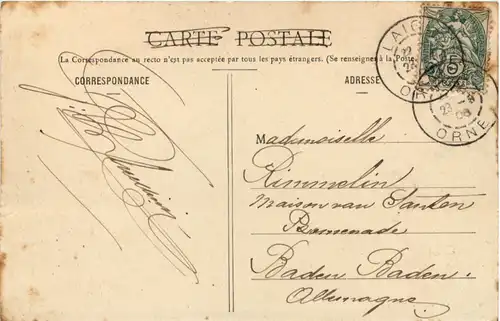 CARTE POSTALE
La Correspondance au recto n'est pas acceptée par tous les pays étrangers. (Se renseigner à la Poste
CORRESPONDANCE
ADRESSE
LAIG
ORNE
5
Mademoiselle
Rimmelin
Maison van Santen
Promenade
Baden Baden
Allemagne